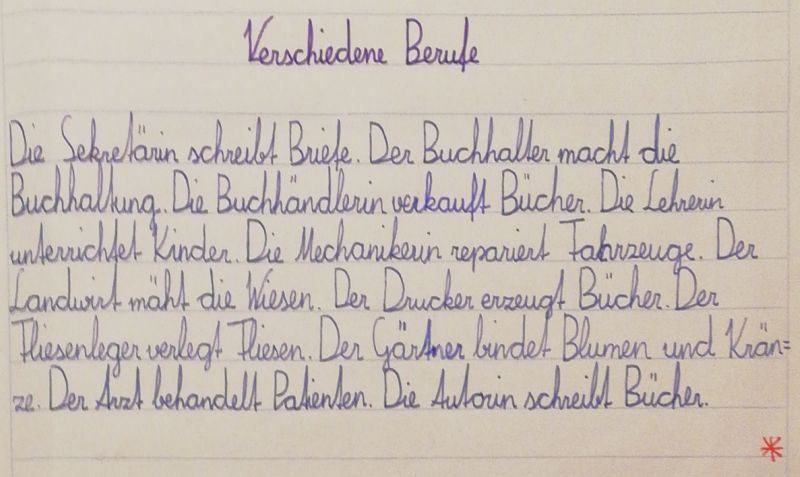 Verschiedene Berufe
Die Sekretärin schreibt Briefe. Der Buchhalter macht die
Buchhaltung. Die Buchhändlerin verkauft Bücher. Die Lehrerin
unterrichtet Kinder. Die Mechanikerin repariert Fahrzeuge. Der
Landwirt mäht die Wiesen. Der Drucker erzeugt Bücher. Der
Fliesenleger verlegt Fliesen. Der Gärtner bindet Blumen und Krän=
ze. Der Arzt behandelt Patienten. Die Autorin schreibt Bücher.